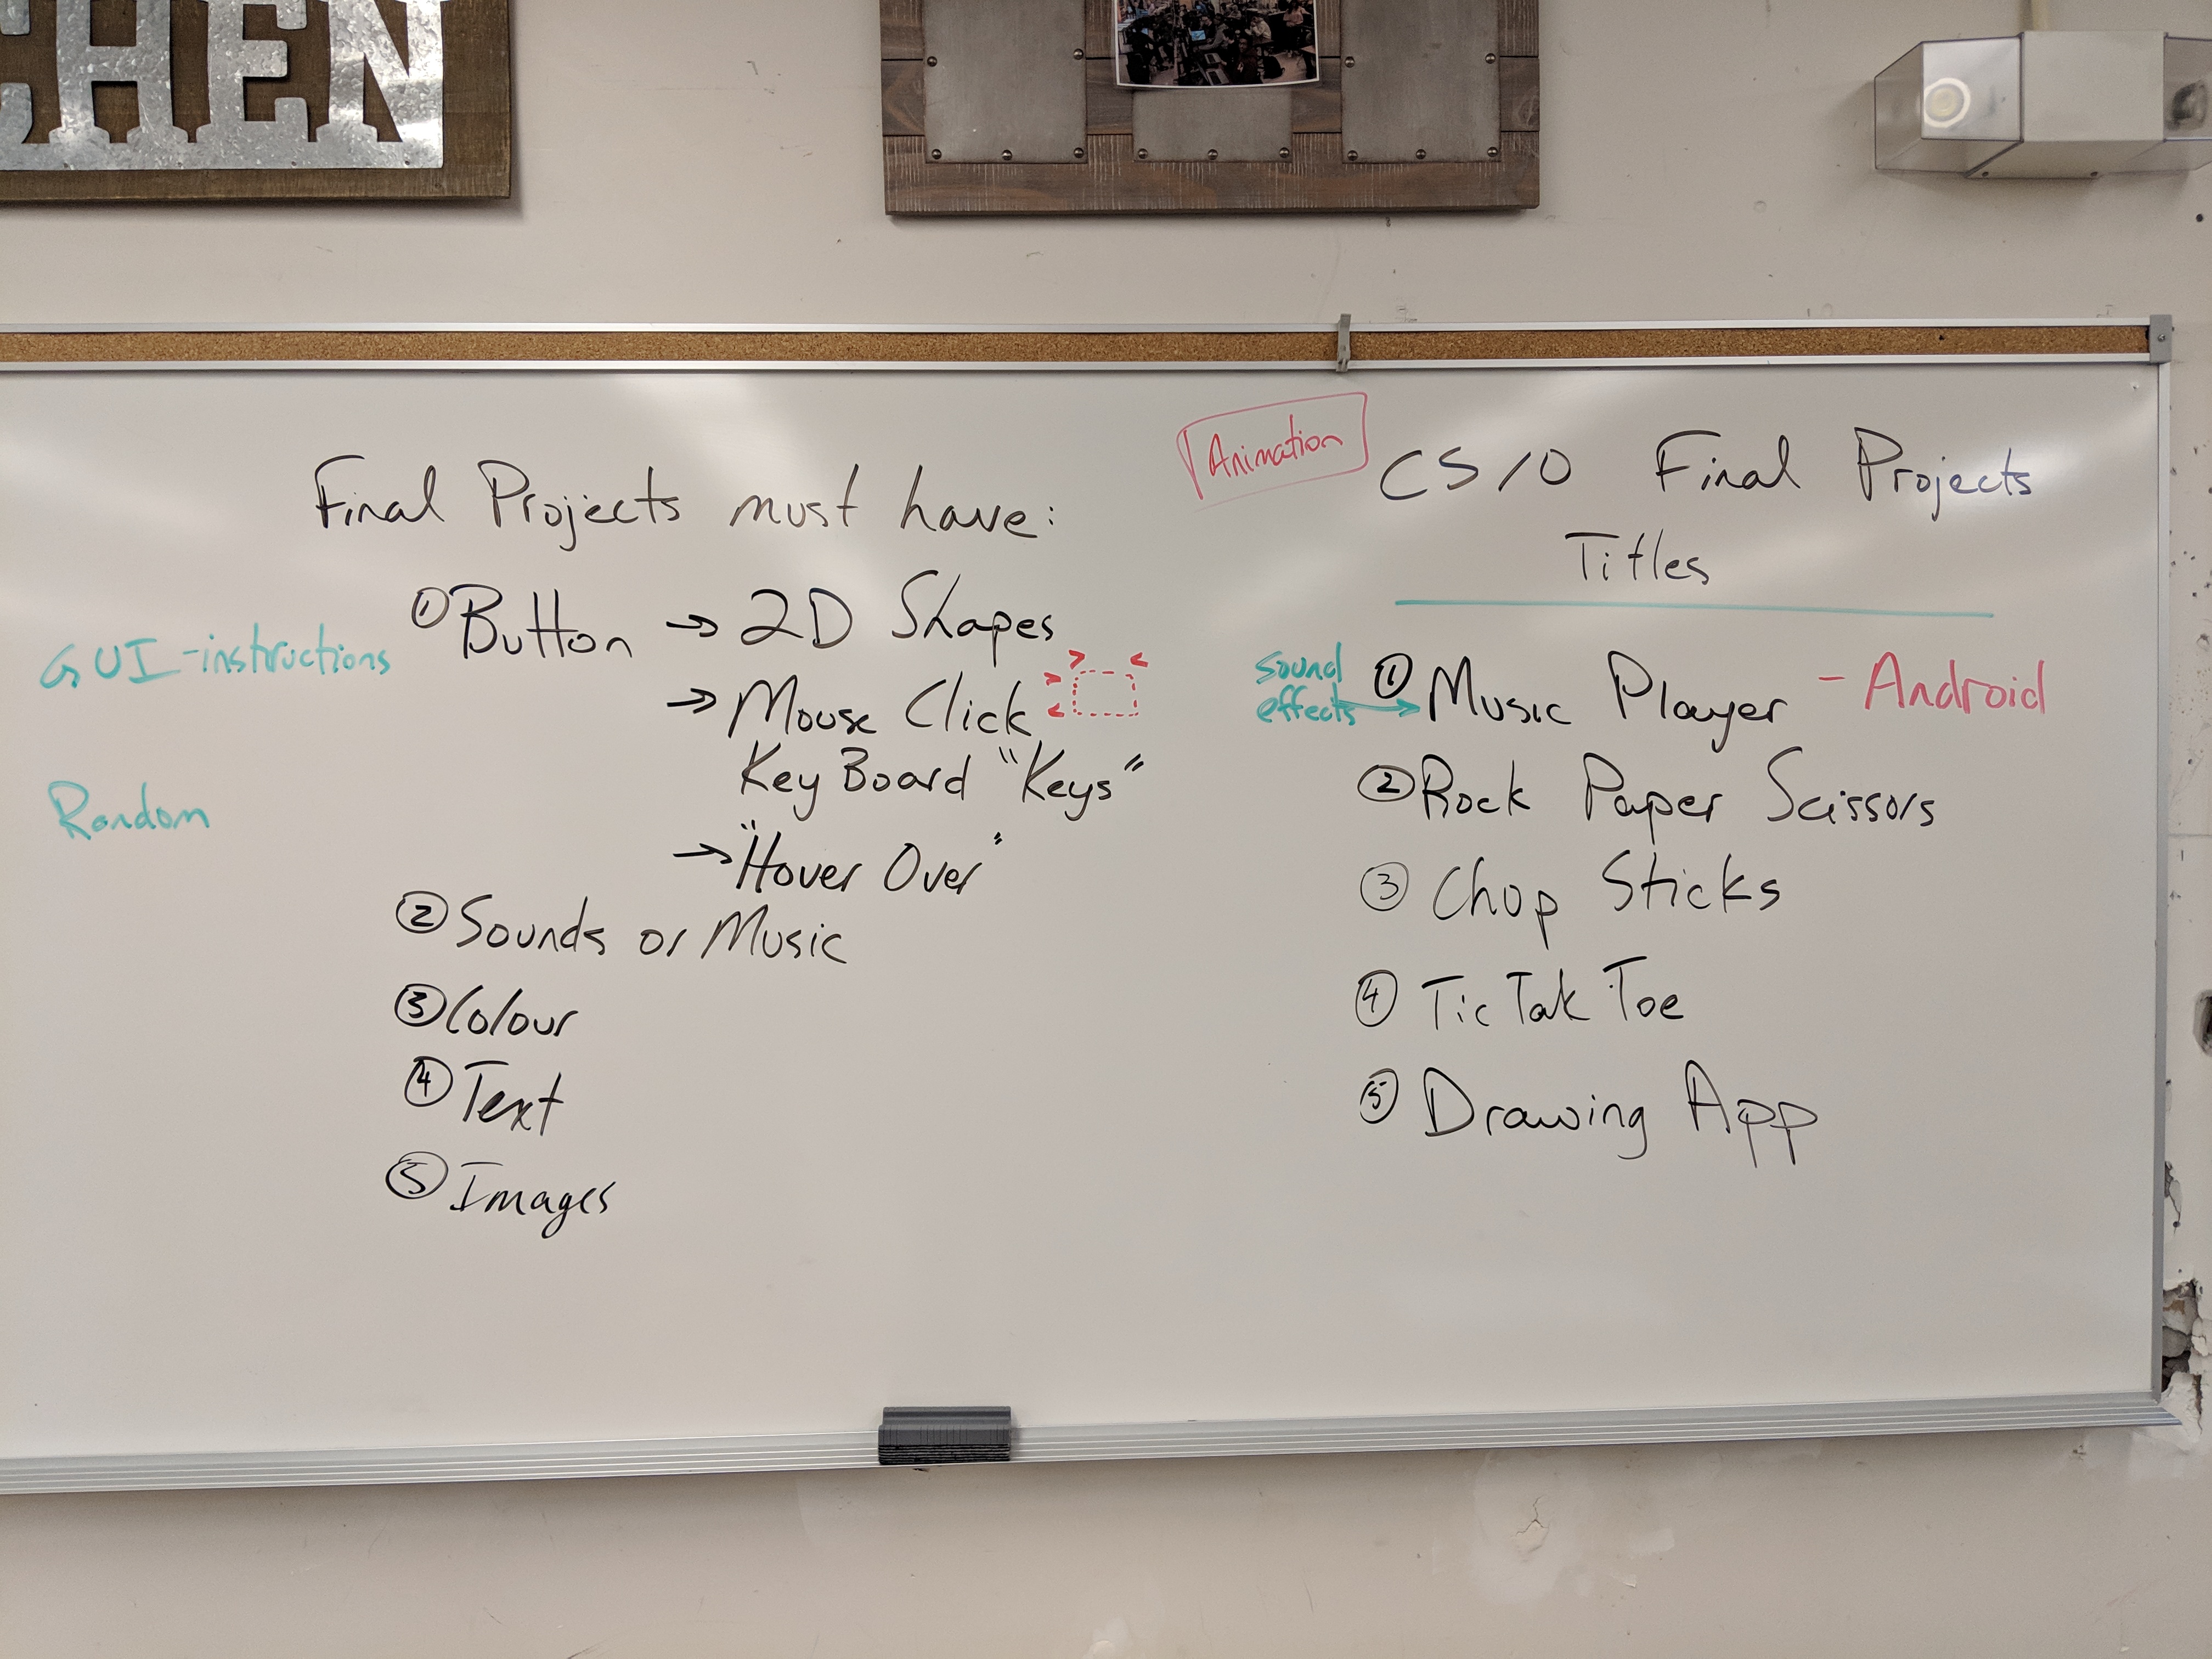 CHEN
Final Projects must have:
① Button → 2D Shapes
→ Mouse Click
Key Board "Keys"
→ "Hover Over"
② Sounds or Music
③ Colour
④ Text
⑤ Images
GUI - instructions
Random
Animation
CS10 Final Projects
Titles
sound
effects →
① Music Player - Android
② Rock Paper Scissors
③ Chop Sticks
④ Tic Tak Toe
⑤ Drawing App